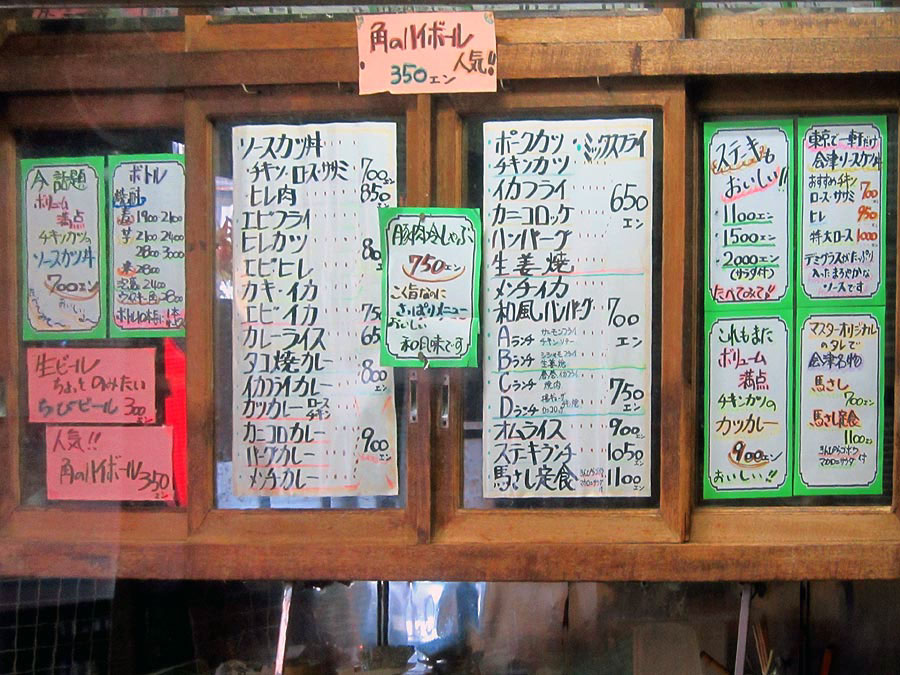 角のハイボール
人気!!
350エン
今話題
ボリューム
満点
チキンカツの
ソースカツ丼
700エン
ボトル
焼酎
麦 1900 2100
芋 2100 2400
2800 3000
米 2800
ボトル
生ビール
ちょっとのみたい
ちびビール 300
人気!!
角のハイボール 350エン
ソースカツ丼
チキン・ロース・ササミ 700エン
ヒレ肉 850エン
エビフライ
ヒレカツ
エビヒレ
カキ・イカ
エビイカ 750
カレーライス 650
タコ焼きカレー
イカフライカレー 800エン
カツカレー ロース チキン
カニコロカレー 900エン
ハーグカレー
メンチカレー
豚肉冷しゃぶ
750エン
こく旨なのに
さっぱりメニュー
おいしい
和風味です
ポークカツ ・ミックスフライ
チキンカツ
イカフライ 650エン
カニコロッケ
ハンバーグ
生姜焼
メンチイカ
和風ハンバーグ 700エン
Aランチ
Bランチ 生姜焼
Cランチ 焼肉
Dランチ 750エン
オムライス 900エン
ステキランチ 1050エン
馬さし定食 1100エン
ステキも
おいしい!!
1100エン
1500エン
2000エン
(サラダ付)
たべてみて!!
東京で一軒だけ
会津ソースカツ丼
おすすめチキン
ロース・ササミ 700
ヒレ 850
特大ロース 1000
デミグラスがたっぷり
入ったまろやかな
ソースです
これもまた
ボリューム
満点
チキンカツの
カツカレー
900エン
おいしい!!
マスターオリジナル
のタレで
会津名物
馬さし
700エン
馬さし定食
1100エン